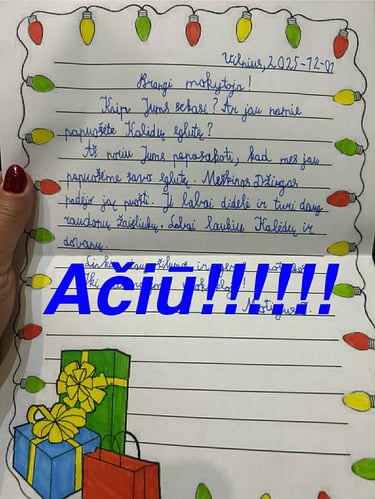 Vilnius, 2025-12-01
Brangi mokytoja!
Kaip Jums sekasi? Ar jau namie
papuošėte Kalėdų eglutę?
Aš noriu Jums papasakoti, kad mes jau
papuošėme savo eglutę. Meškinas Džiugas
padėjo ją puošti. Ji labai didelė ir turi daug
raudonų žaisliukų. Labai laukiu Kalėdų ir
dovanų.
Ačiū!!!!!!